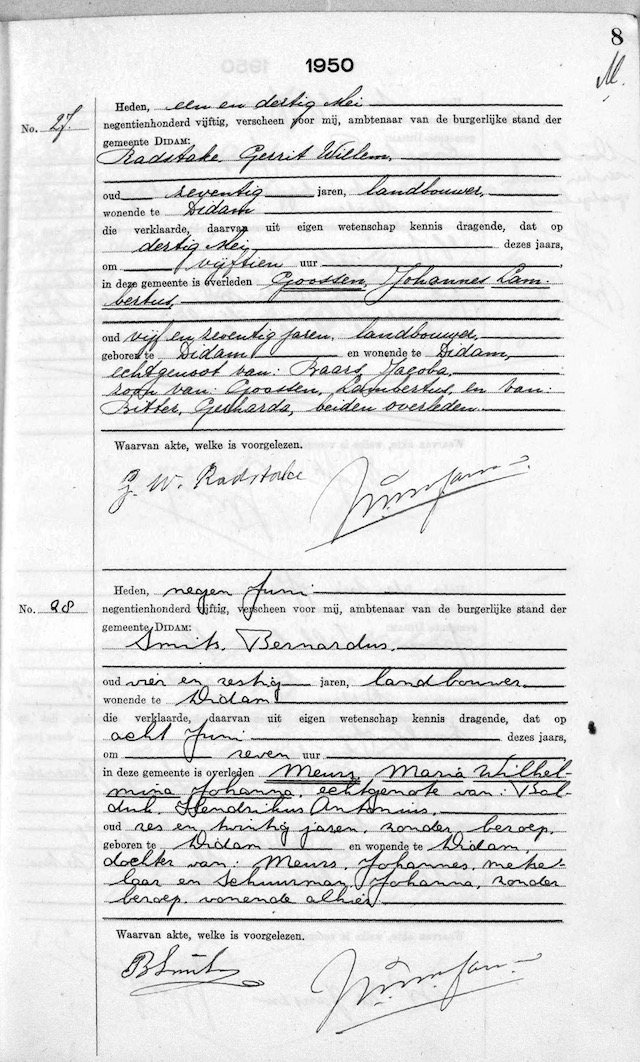 8
1950
M.
Heden, een en dertig Mei
No. 27.
negentienhonderd vijftig, verscheen voor mij, ambtenaar van de burgerlijke stand der
gemeente DIDAM:
Radstake, Gerrit Willem,
oud zeventig jaren, landbouwer,
wonende te Didam
die verklaarde, daarvan uit eigen wetenschap kennis dragende, dat op
dertig Mei, dezes jaars,
om vijftien uur
in deze gemeente is overleden Goossen, Johannes Lam-
bertus,
oud vijf en zeventig jaren, landbouwer,
geboren te Didam en wonende te Didam,
echtgenoot van: Baars, Jacoba,
zoon van: Goossen, Lambertus, en van:
Ritter, Gerharda, beiden overleden.
Waarvan akte, welke is voorgelezen.
G. W. Radstake
Heden, negen Juni
No. 28
negentienhonderd vijftig, verscheen voor mij, ambtenaar van de burgerlijke stand der
gemeente DIDAM:
Smits, Bernardus,
oud vier en zestig jaren, landbouwer,
wonende te Didam
die verklaarde, daarvan uit eigen wetenschap kennis dragende, dat op
acht Juni dezes jaars,
om zeven uur
in deze gemeente is overleden Meurs, Maria Wilhel-
mina Johanna, echtgenote van: Bol-
dik, Hendrikus Antonius,
oud zes en twintig jaren, zonder beroep,
geboren te Didam en wonende te Didam,
dochter van: Meurs, Johannes, metse-
laar en Schuurman, Johanna, zonder
beroep, wonende alhier
Waarvan akte, welke is voorgelezen.
B Smits